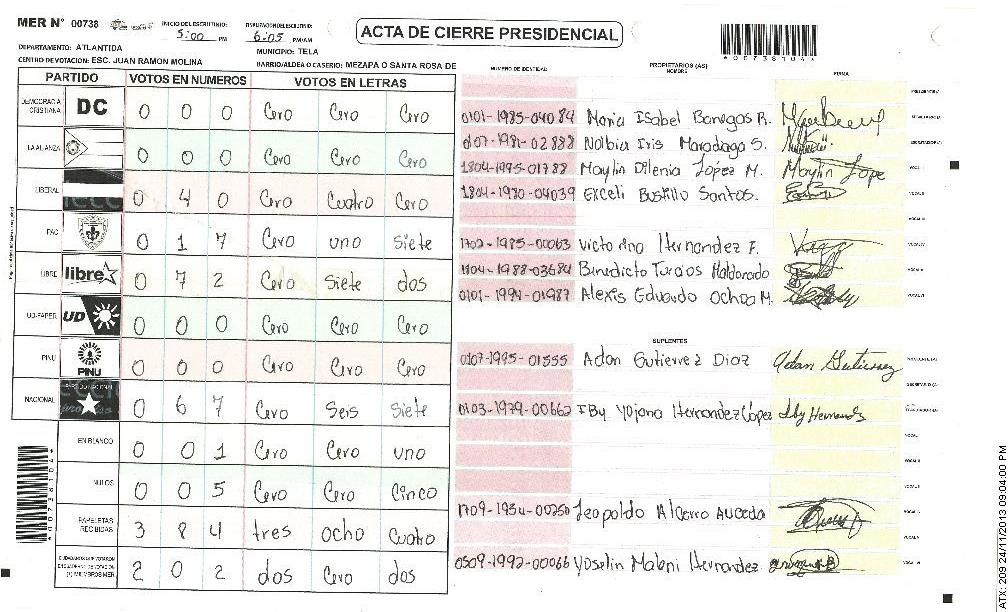 MER N° 00738
INICIO DEL ESCRUTINIO: 5:00 PM
FINALIZACION DEL ESCRUTINIO: 6:05 PM/AM
ACTA DE CIERRE PRESIDENCIAL
*00738104*
DEPARTAMENTO: ATLANTIDA
MUNICIPIO: TELA
CENTRO DE VOTACION: ESC. JUAN RAMON MOLINA
BARRIO/ALDEA O CASERIO: MEZAPA O SANTA ROSA DE
PARTIDO VOTOS EN NUMEROS VOTOS EN LETRAS
DEMOCRACIA CRISTIANA DC 0 0 0 Cero Cero Cero
LA ALIANZA 0 0 0 Cero Cero Cero
LIBERAL 0 4 0 Cero Cuatro Cero
PAC 0 1 7 Cero uno siete
LIBRE libre 0 7 2 Cero siete dos
UD-FAPER UD 0 0 0 Cero Cero Cero
PINU PINU 0 0 0 Cero Cero Cero
NACIONAL 0 6 7 Cero Seis siete
EN BLANCO 0 0 1 Cero Cero uno
NULOS 0 0 5 Cero Cero Cinco
PAPELETAS RECIBIDAS 3 8 4 tres ocho Cuatro
CIUDADANOS QUE VOTARON
(+) MIEMBROS MER 2 0 2 dos Cero dos
*00738104*
NUMERO DE IDENTIDAD
PROPIETARIOS (AS)
NOMBRE
FIRMA
PRESIDENTE/A
0101-1985-04084 Maria Isabel Banegas R.
Nolbia Iris Maradaga S.
1804-1995-01788 Maylin Dilenia López M. Maylin Lope
1804-1980-04039 Exceli Bustillo Santos.
1702-1985-00063 Victorino Hernandez F.
1804-1988-03684 Benedicto Turcios Maldonado
0101-1994-01987 Alexis Eduardo Ochoa M.
SUPLENTES
0107-1995-01555 Adan Gutierrez Diaz Adan Gutierrez
0103-1979-00662 Iby Yojana Hernandez López Iby Hernandz
Leopoldo
0509-1992-00066 Yoselin Maleni Hernandez
ATX: 209 24/11/2013 09:04:00 PM